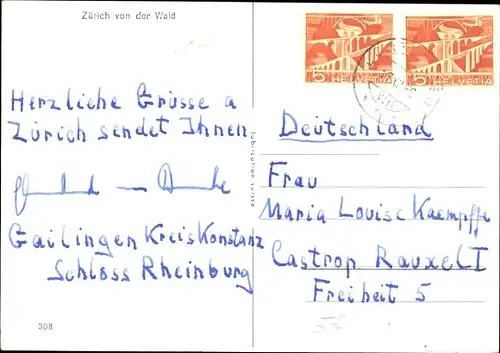 Zürich von der Waid
Herzliche Grüsse a
Zürich sendet Ihnen
Gailingen Kreis Konstanz
Schloss Rheinburg
308
fabrication suisse
5 HELVETIA
5 HELVETIA
Deutschland
Frau
Maria Louise Kaempffe
Castrop Rauxel I
Freiheit 5